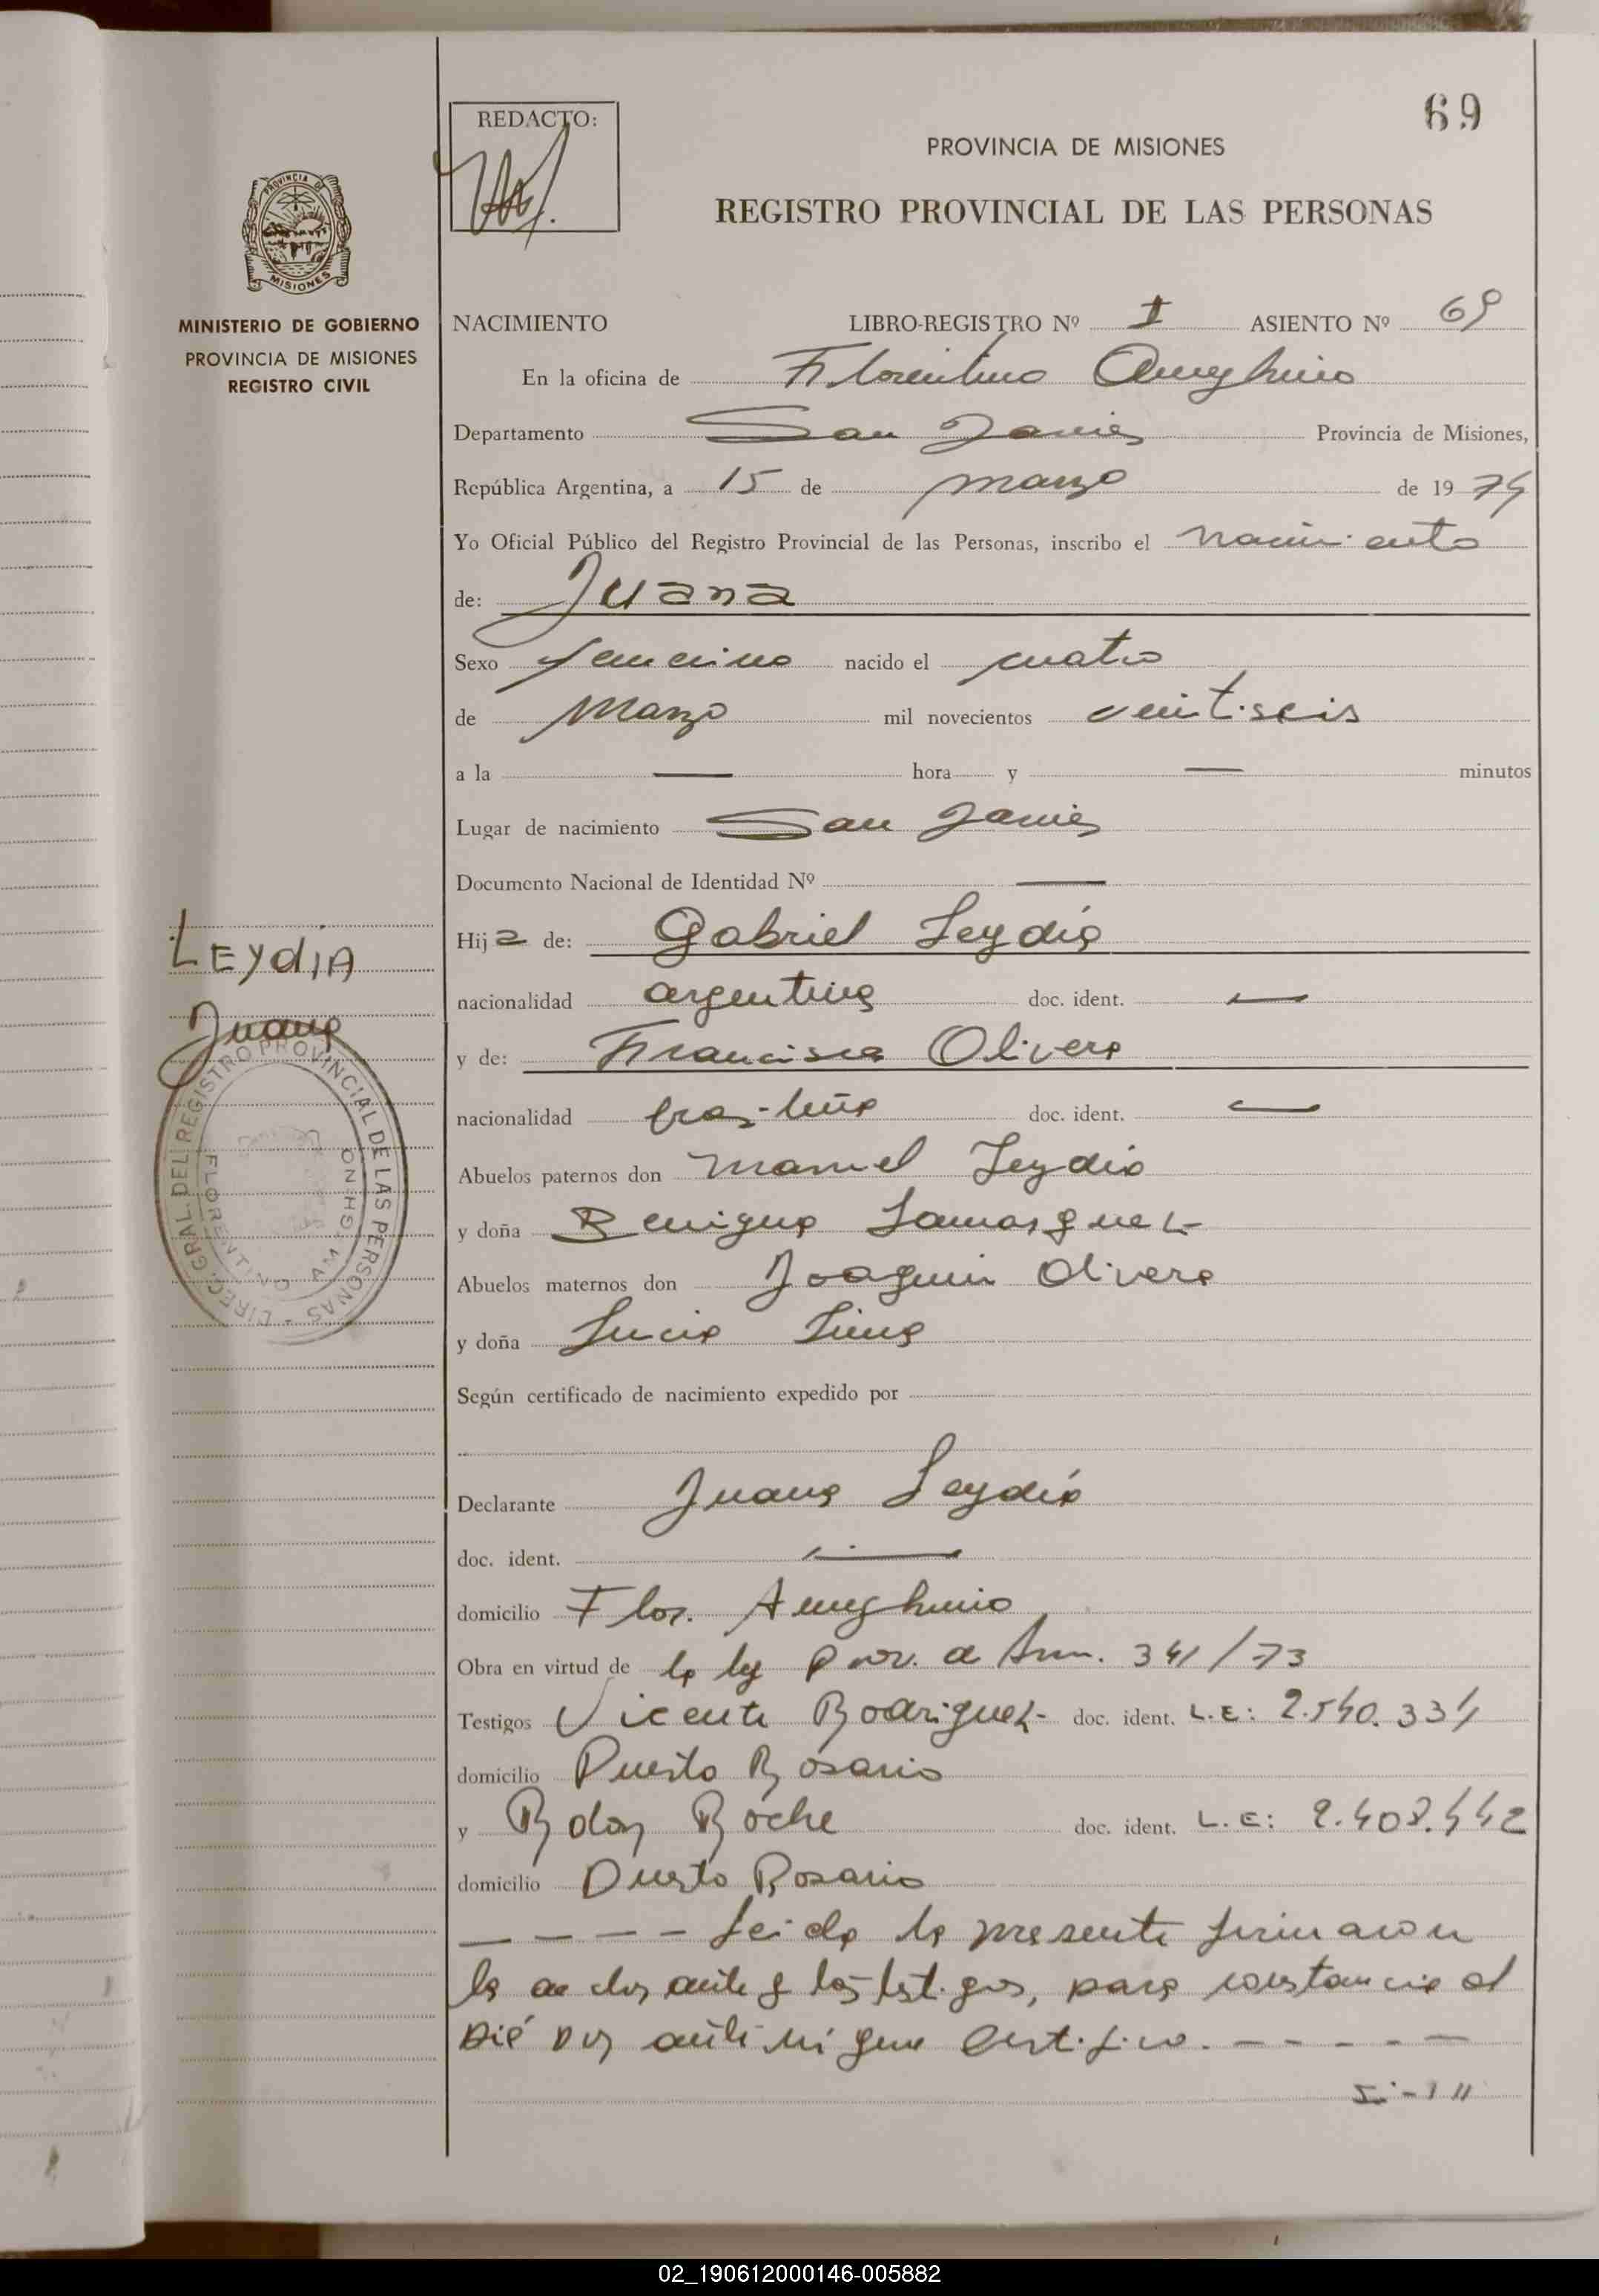 69
REDACTO:
PROVINCIA DE MISIONES
REGISTRO PROVINCIAL DE LAS PERSONAS
PROVINCIA DE
MISIONES
MINISTERIO DE GOBIERNO
PROVINCIA DE MISIONES
REGISTRO CIVIL
NACIMIENTO LIBRO-REGISTRO Nº I ASIENTO Nº 69
En la oficina de Florentino Ameghino
Departamento San Javier Provincia de Misiones,
República Argentina, a 15 de marzo de 1974
Yo Oficial Público del Registro Provincial de las Personas, inscribo el nacimiento
de: Juana
Sexo femenino nacido el cuatro
de Marzo mil novecientos veintiseis
a la — hora y — minutos
Lugar de nacimiento San Javier
Documento Nacional de Identidad Nº —
Hija de: Gabriel Leydia
nacionalidad argentina doc. ident. —
y de: Francisca Olivera
nacionalidad brasileña doc. ident. —
Abuelos paternos don Manuel Leydia
y doña Benigna
Abuelos maternos don Joaquin Olivera
y doña Lucia Lima
Según certificado de nacimiento expedido por
Declarante Juana Leydia
doc. ident. —
domicilio Flor. Ameghino
Obra en virtud de la ley prov. de 341/73
Testigos Vicente Rodriguez doc. ident. L.E: 2.540.334
domicilio Puerto Rosario
y Roche doc. ident. L.E: 2.408.442
domicilio Puerto Rosario
— — — — Leida la presente firmaron
la y los testigos, para constancia el
ante mi que certifico. — — — — —
LEYdiA
Juana
DIREC. GRAL. DEL REGISTRO PROVINCIAL DE LAS PERSONAS
FLORENTINO AMEGHINO
02_190612000146-005882